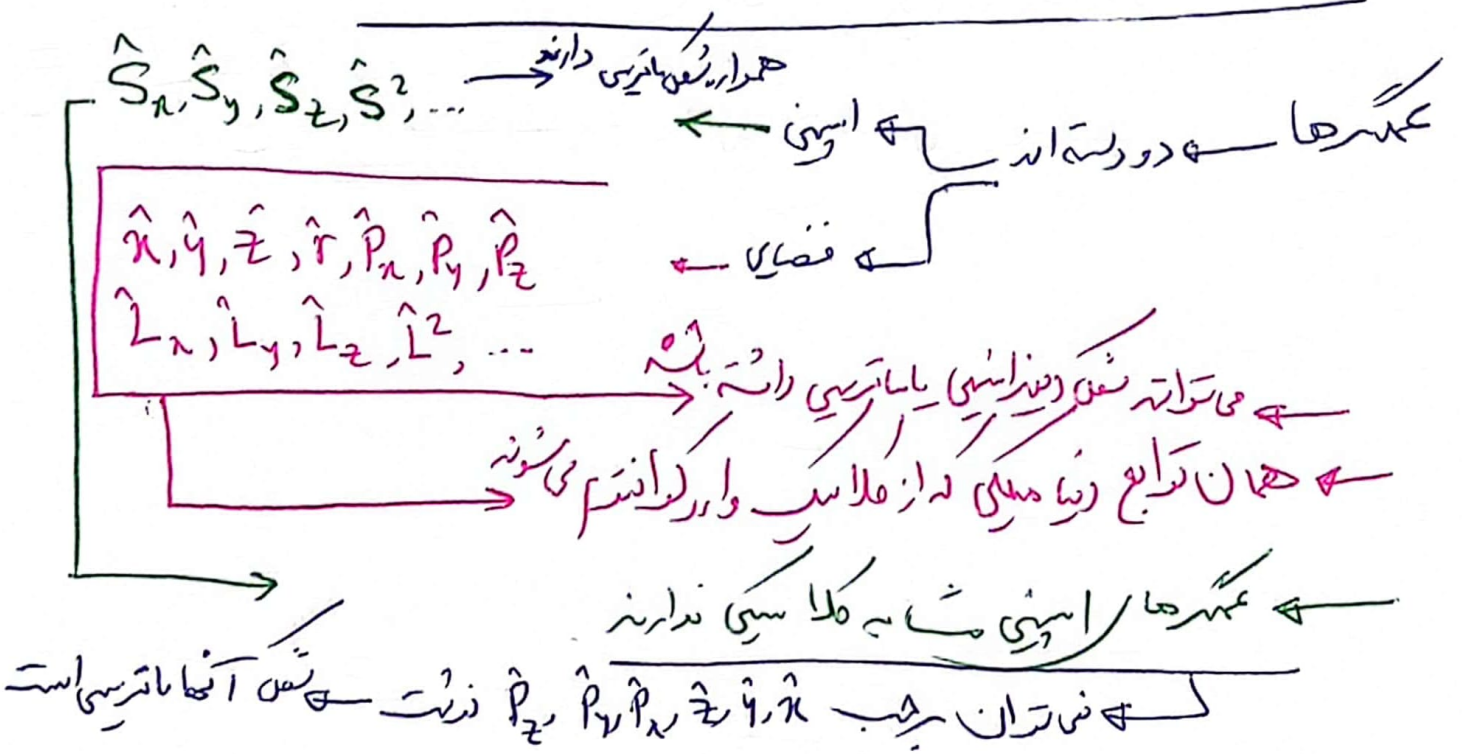 عملگرها ← دو دسته اند ← اسپینی ← Ŝx, Ŝy, Ŝz, Ŝ², ... → همواره شکل ماتریسی دارند
← فضایی ←
x̂, ŷ, ẑ, r̂, P̂x, P̂y, P̂z
L̂x, L̂y, L̂z, L̂², ...
← می تواند شکل دیفرانسیلی یا ماتریسی داشته باشد
← همان توابع دینامیکی که از کلاسیک وارد کوانتوم می شوند
← عملگرهای اسپینی مشابه کلاسیکی ندارند
← نمی توان برحسب x̂, ŷ, ẑ, P̂x, P̂y, P̂z نوشت ← شکل آنها ماتریسی است